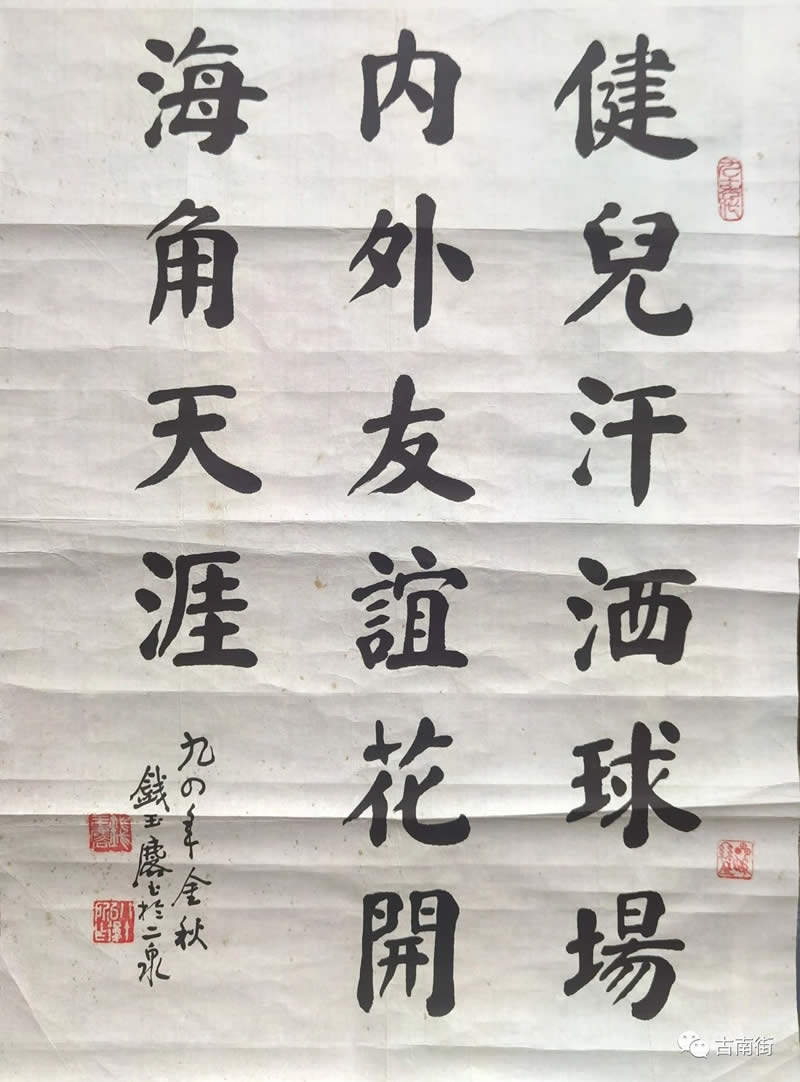 健兒汗洒球場
内外友誼花開
海角天涯
九四年金秋
錢玉麐书於二泉
古南街